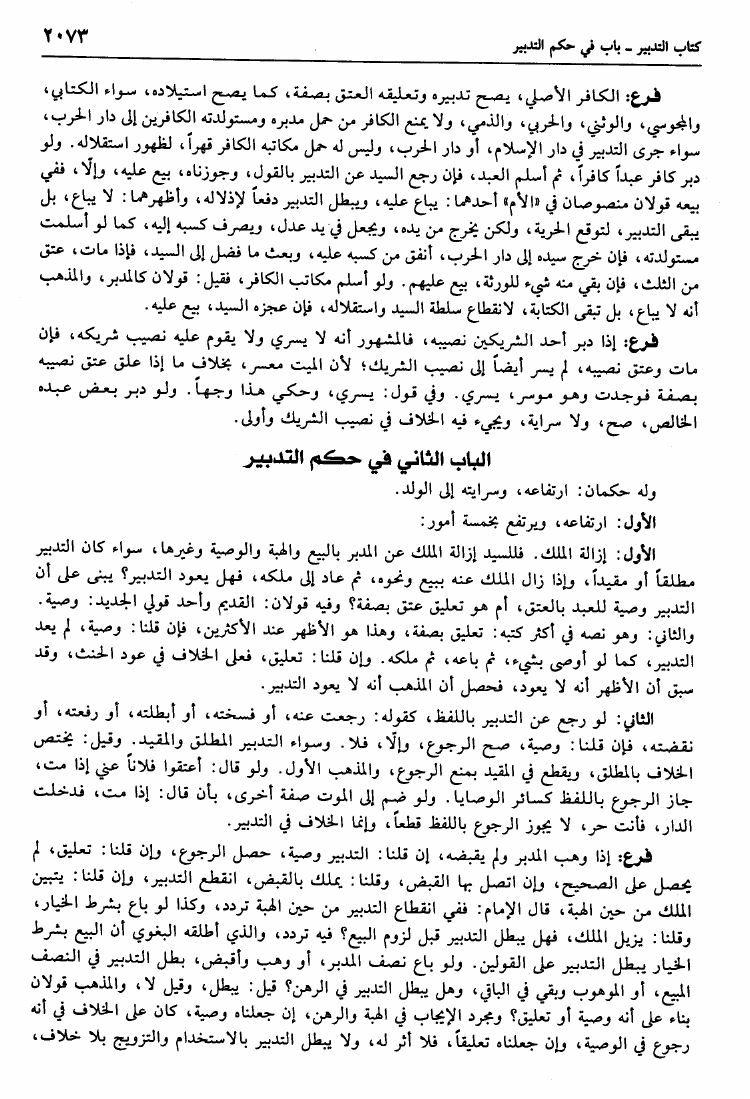 كتاب التدبير ـ باب في حكم التدبير ٢٠٧٣
فرع: الكافر الأصلي، يصح تدبيره وتعليقه العتق بصفة، كما يصح استيلاده، سواء الكتابي،
والمجوسي، والوثني، والحربي، والذمي، ولا يمنع الكافر من حمل مدبره ومستولدته الكافرين إلى دار الحرب،
سواء جرى التدبير في دار الإسلام، أو دار الحرب، وليس له حمل مكاتبه الكافر قهراً، لظهور استقلاله. ولو
دبر كافر عبداً كافراً، ثم أسلم العبد، فإن رجع السيد عن التدبير بالقول، وجوزناه، بيع عليه، وإلّا، ففي
بيعه قولان منصوصان في «الأم» أحدهما: يباع عليه، ويبطل التدبير دفعاً لإذلاله، وأظهرهما: لا يباع، بل
يبقى التدبير، لتوقع الحرية، ولكن يخرج من يده، ويجعل في يد عدل، ويصرف كسبه إليه، كما لو أسلمت
مستولدته، فإن خرج سيده إلى دار الحرب، أنفق من كسبه عليه، وبعث ما فضل إلى السيد، فإذا مات، عتق
من الثلث، فإن بقي منه شيء للورثة، بيع عليهم. ولو أسلم مكاتب الكافر، فقيل: قولان كالمدبر، والمذهب
أنه لا يباع، بل تبقى الكتابة، لانقطاع سلطة السيد واستقلاله، فإن عجزه السيد، بيع عليه.
فرع: إذا دبر أحد الشريكين نصيبه، فالمشهور أنه لا يسري ولا يقوم عليه نصيب شريكه، فإن
مات وعتق نصيبه، لم يسر أيضاً إلى نصيب الشريك؛ لأن الميت معسر، بخلاف ما إذا علق عتق نصيبه
بصفة فوجدت وهو موسر، يسري. وفي قول: يسري، وحكي هذا وجهاً. ولو دبر بعض عبده
الخالص، صح، ولا سراية، ويجيء فيه الخلاف في نصيب الشريك وأولى.
الباب الثاني في حكم التدبير
وله حكمان: ارتفاعه، وسرايته إلى الولد.
الأول: ارتفاعه، ويرتفع بخمسة أمور:
الأول: إزالة الملك. فللسيد إزالة الملك عن المدبر بالبيع والهبة والوصية وغيرها، سواء كان التدبير
مطلقاً أو مقيداً، وإذا زال الملك عنه ببيع ونحوه، ثم عاد إلى ملكه، فهل يعود التدبير؟ يبنى على أن
التدبير وصية للعبد بالعتق، أم هو تعليق عتق بصفة؟ وفيه قولان: القديم وأحد قولي الجديد: وصية.
والثاني: وهو نصه في أكثر كتبه: تعليق بصفة، وهذا هو الأظهر عند الأكثرين، فإن قلنا: وصية، لم يعد
التدبير، كما لو أوصى بشيء، ثم باعه، ثم ملكه. وإن قلنا: تعليق، فعلى الخلاف في عود الحنث، وقد
سبق أن الأظهر أنه لا يعود، فحصل أن المذهب أنه لا يعود التدبير.
الثاني: لو رجع عن التدبير باللفظ، كقوله: رجعت عنه، أو فسخته، أو أبطلته، أو رفعته، أو
نقضته، فإن قلنا: وصية، صح الرجوع، وإلّا، فلا. وسواء التدبير المطلق والمقيد. وقيل: يختص
الخلاف بالمطلق، ويقطع في المقيد بمنع الرجوع، والمذهب الأول. ولو قال: أعتقوا فلاناً عني إذا مت،
جاز الرجوع باللفظ كسائر الوصايا. ولو ضم إلى الموت صفة أخرى، بأن قال: إذا مت، فدخلت
الدار، فأنت حر، لا يجوز الرجوع باللفظ قطعاً، وإنما الخلاف في التدبير.
فرع: إذا وهب المدبر ولم يقبضه، إن قلنا: التدبير وصية، حصل الرجوع، وإن قلنا: تعليق، لم
يحصل على الصحيح، وإن اتصل بها القبض، وقلنا: يملك بالقبض، انقطع التدبير، وإن قلنا: يتبين
الملك من حين الهبة، قال الإمام: ففي انقطاع التدبير من حين الهبة تردد، وكذا لو باع بشرط الخيار،
وقلنا: يزيل الملك، فهل يبطل التدبير قبل لزوم البيع؟ فيه تردد، والذي أطلقه البغوي أن البيع بشرط
الخيار يبطل التدبير على القولين. ولو باع نصف المدبر، أو وهب وأقبض، بطل التدبير في النصف
المبيع، أو الموهوب وبقي في الباقي، وهل يبطل التدبير في الرهن؟ قيل: يبطل، وقيل لا، والمذهب قولان
بناء على أنه وصية أو تعليق؟ ومجرد الإيجاب في الهبة والرهن، إن جعلناه وصية، كان على الخلاف في أنه
رجوع في الوصية، وإن جعلناه تعليقاً، فلا أثر له، ولا يبطل التدبير بالاستخدام والتزويج بلا خلاف،